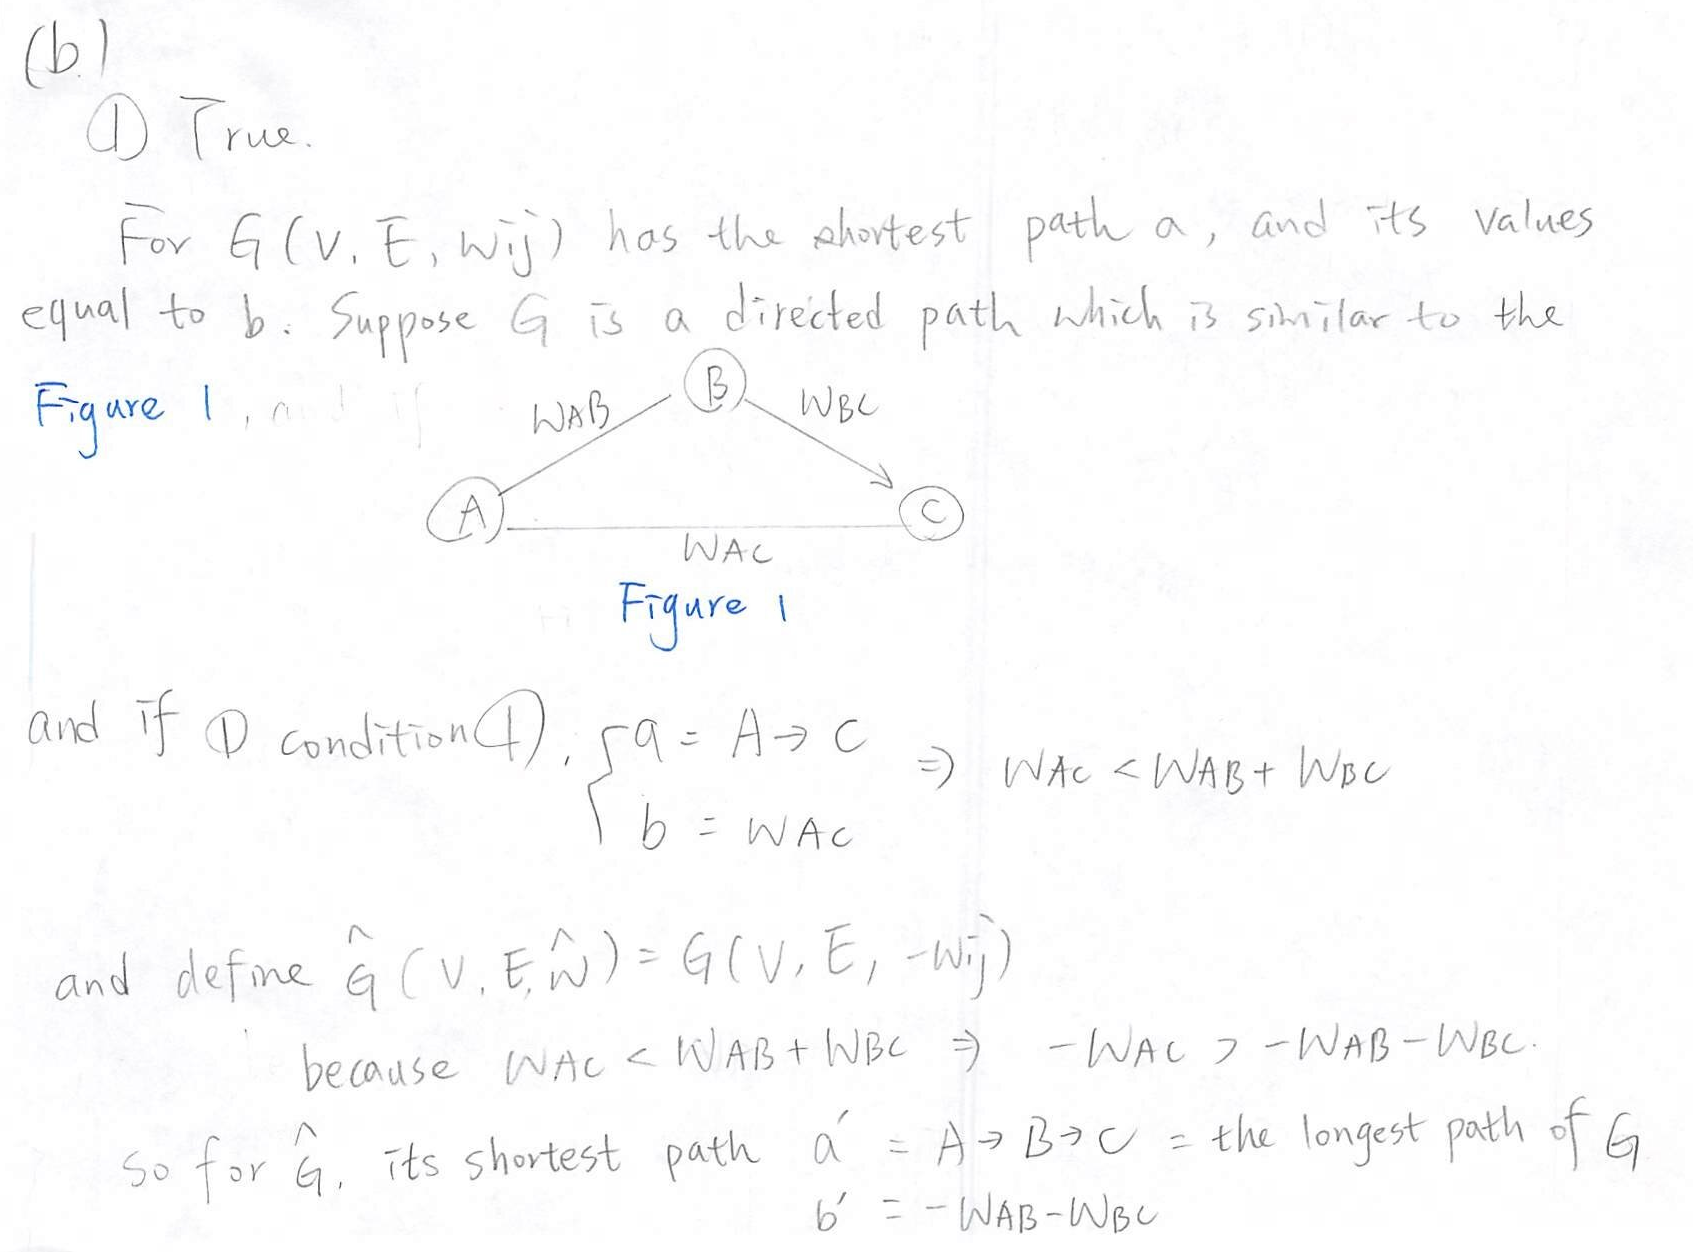 (b)
① True.
For G(V, E, wij) has the shortest path a, and its values
equal to b. Suppose G is a directed path which is similar to the
Figure 1, and if
B
WAB
WBC
A
C
WAC
Figure 1
and if ① condition ①, { a = A → C
b = WAC
⇒ WAC < WAB + WBC
and define Ĝ(V, E, ŵ) = G(V, E, -wij)
because WAC < WAB + WBC ⇒ -WAC > -WAB - WBC.
so for Ĝ, its shortest path a' = A → B → C = the longest path of G
b' = -WAB - WBC